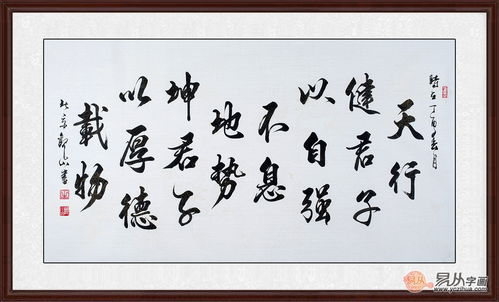 時在丁酉春月
天行
健君子
以自强
不息
地势
坤君子
以厚德
載物
山書
易从字画
www.yczihua.com